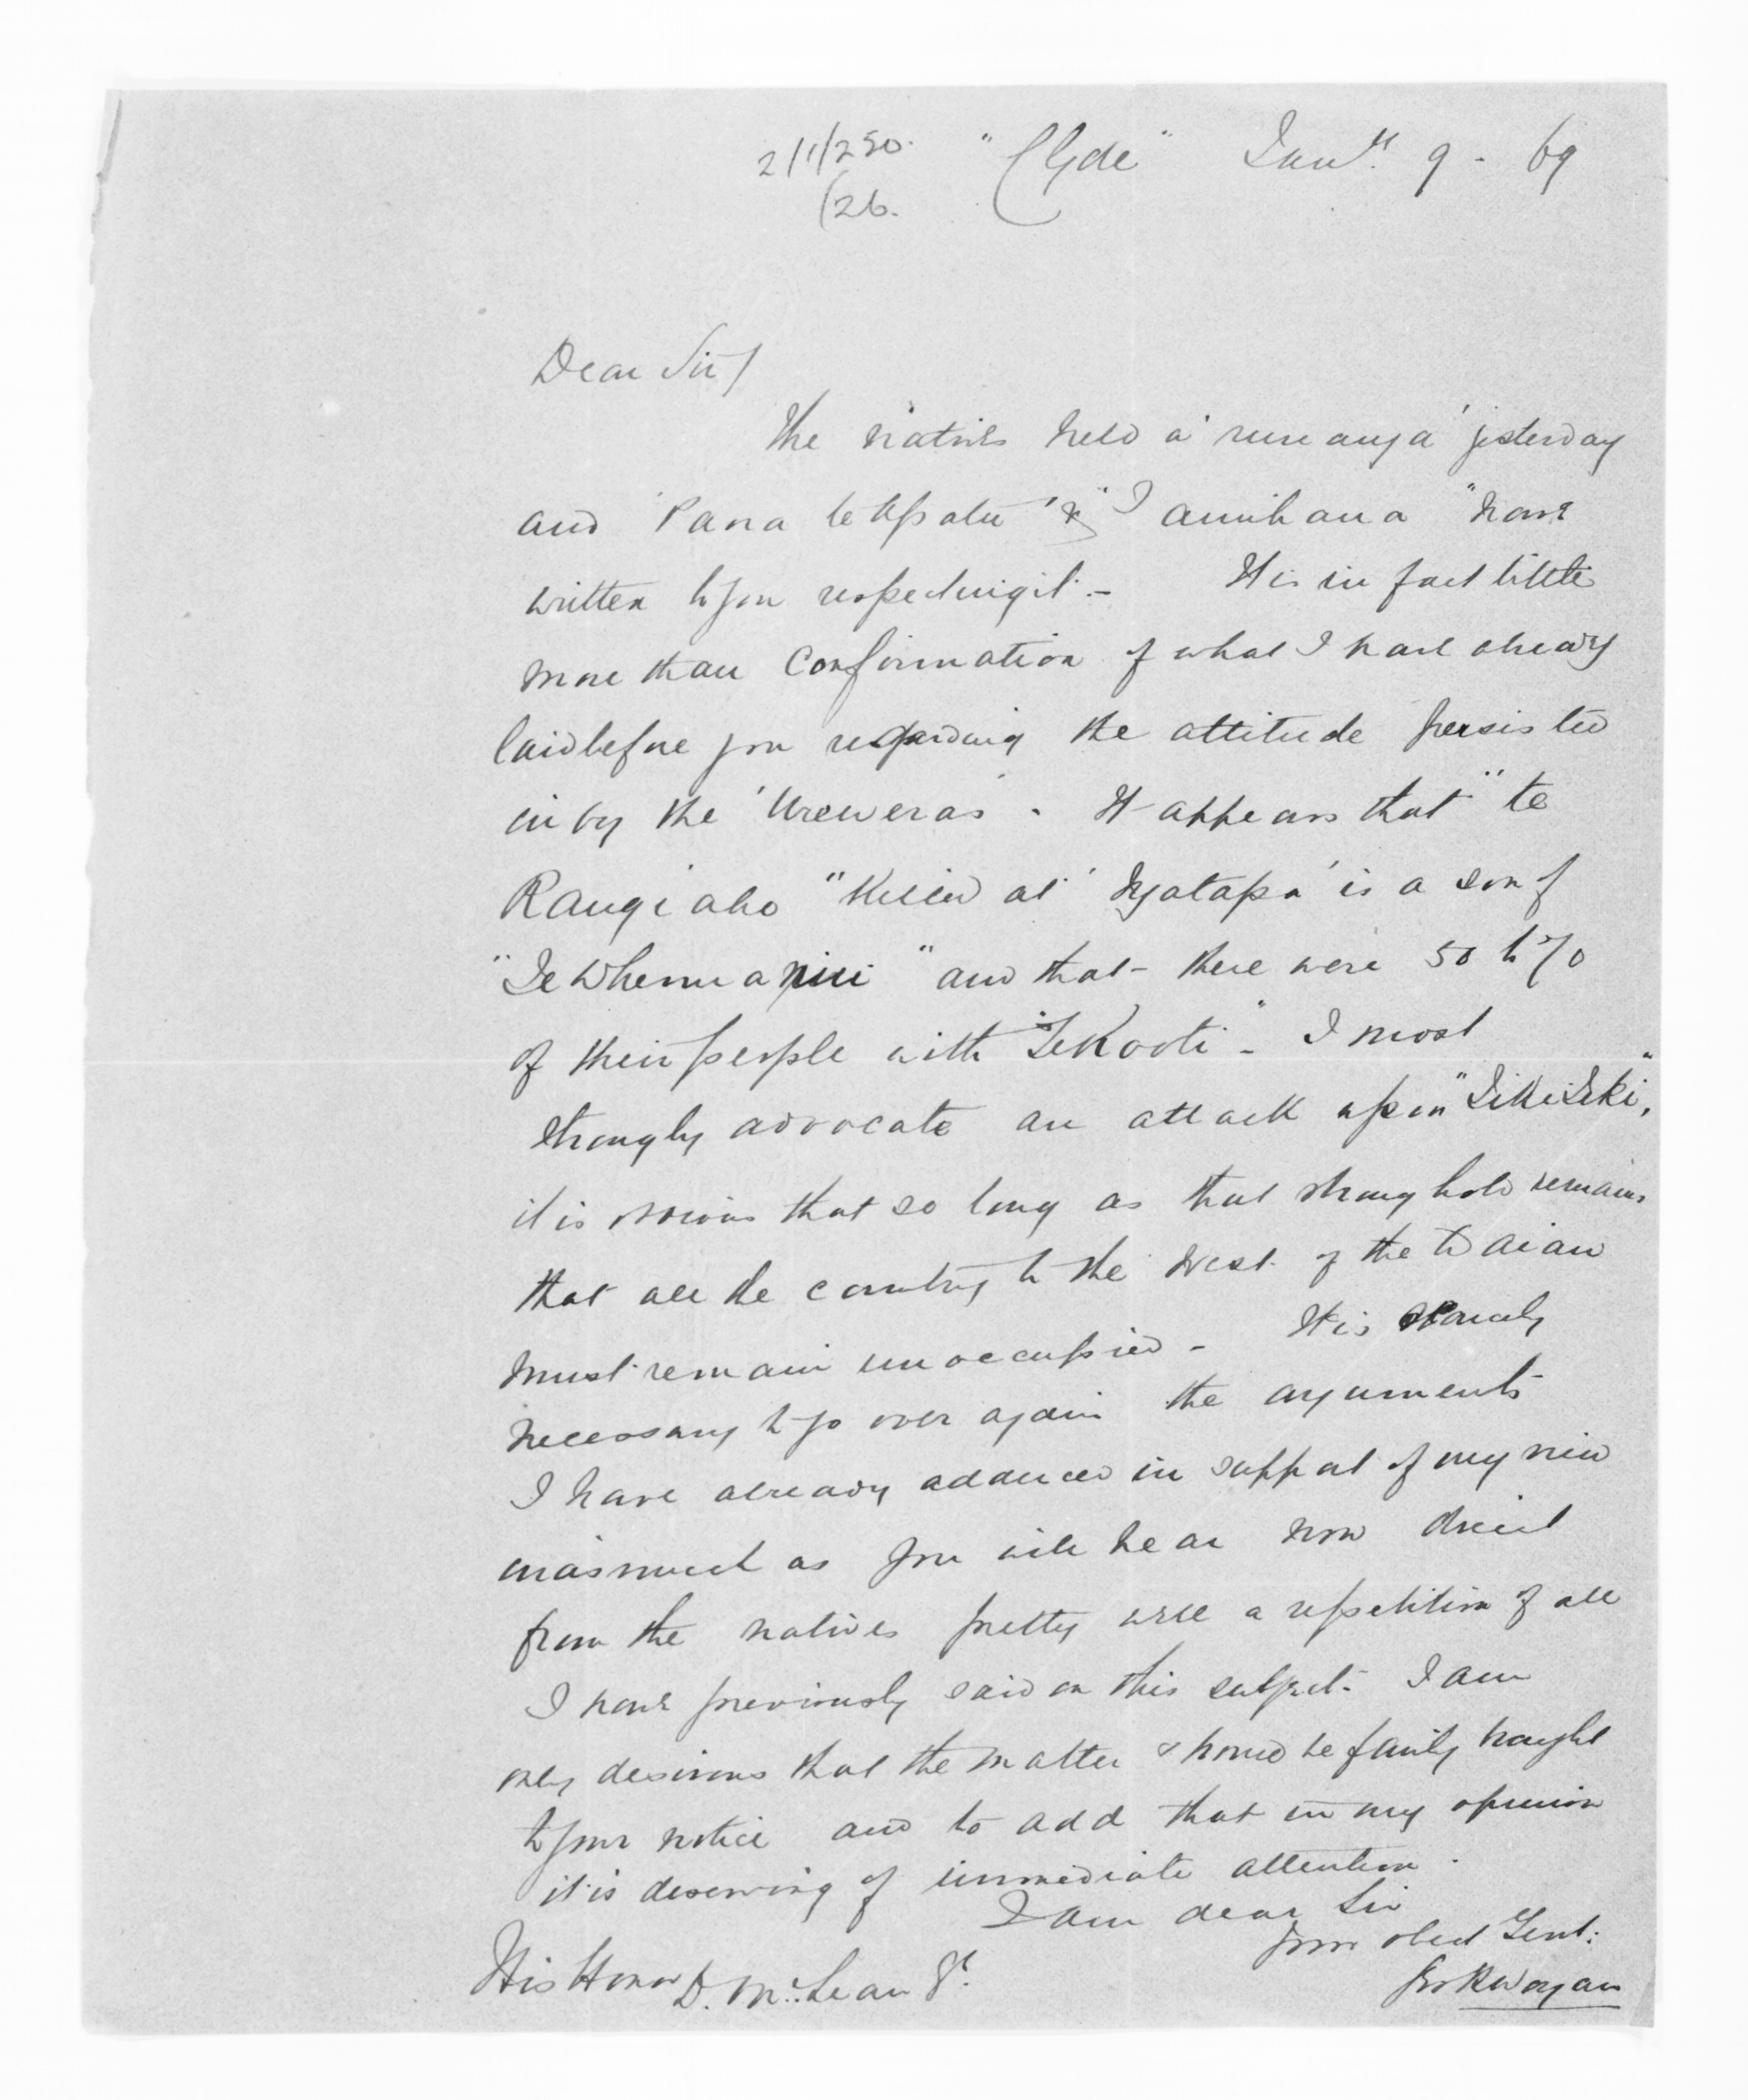 2/1/250. "Clyde" Jany. 9 - 69
/26.
Dear Sir/
The natives held a 'runanga' yesterday
and 'Paora te Apatu' & "Tamihana" have
written to you respecting it. - It is in fact little
more than confirmation of what I have already
laid before you regarding the attitude persisted
in by the 'Urewera's'. It appears that "te
Rangiaho" killed at 'Ngatapa' is a son of
"Te Whenuanui" and that - there were 50 to 70
of their people with "Te Kooti" - I most
strongly advocate an attack upon "TikiTiki",
it is obvious that so long as that stronghold remains
that all the country to the West of the Waiau
must remain unoccupied - It is scarcely
necessary to go over again the arguments
I have already adduced in support of my view
inasmuch as you will hear now direct
from the natives pretty well a repetition of all
I have previously said on this subject. I am
only desirous that the matter should be fairly brought
to your notice and to add that in my opinion
it is deserving of immediate attention.
I am dear Sir
His Honor D. McLean Your obedt Servt: